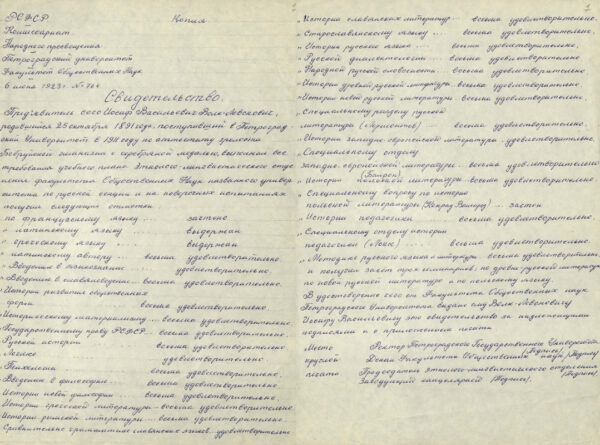 РСФСР Копия
Комиссариат
Народного просвещения
Петроградский университет
Факультет Общественных Наук
6 июня 1923 г. №
Свидетельство.
Предъявитель сего Иосиф Васильевич Волк-Левонович,
родившийся 25 октября 1891 года, поступивший в Петроград-
ский Университет в 1911 году по аттестату зрелости
Бобруйской гимназии с серебряной медалью, выполнил все
требования учебного плана Этнолого-лингвистического отде-
ления факультета Общественных Наук названного универ-
ситета по русской секции и на поверочных испытаниях
получил следующие отметки
по французскому языку ... зачтено
" латинскому языку ... выдержал
" греческому языку ... выдержал
" латинскому автору ... весьма удовлетворительно
" Введению в языкознание ... удовлетворительно,
" Введению в славяноведение ... весьма удовлетворительно,
Истории развития общественных
форм весьма удовлетворительно,
Историческому материализму ... весьма удовлетворительно,
Государственному праву РСФСР ... весьма удовлетворительно,
Русской истории весьма удовлетворительно,
Логике удовлетворительно,
Психологии весьма удовлетворительно,
Введению в философию ... весьма удовлетворительно,
Истории новой философии ... весьма удовлетворительно,
Истории греческой литературы ... весьма удовлетворительно,
Истории римской литературы ... весьма удовлетворительно,
Сравнительной грамматике славянских языков ... удовлетворительно
1
" Истории славянских литератур ... весьма удовлетворительно,
" Старославянскому языку ... весьма удовлетворительно,
" Истории русского языка ... весьма удовлетворительно,
" Русской диалектологии ... весьма удовлетворительно,
" Народной русской словесности ... весьма удовлетворительно,
" Истории древней русской литературы ... весьма удовлетворительно,
" Истории новой русской литературы ... весьма удовлетворительно,
" Специальному разделу русской
литературы (Лермонтов) ... весьма удовлетворительно,
" Истории западно европейской литературы ... удовлетворительно,
" Специальному отделу
западно европейской литературы ... весьма удовлетворительно
(Байрон)
" Истории польской литературы ... весьма удовлетворительно,
" Специальному вопросу по истории
польской литературы (Конрад Валленрод) ... зачтен
" Истории педагогики ... весьма удовлетворительно,
" Специальному отделу истории
педагогики (Локк) ... весьма удовлетворительно,
" Методике русского языка и литературы ... весьма удовлетворительно
и получил зачет трех семинариев: по древней русской литературе,
по новой русской литературе и по польскому языку.
В удостоверение сего от Факультета Общественных Наук
Петроградского Университета выдано ему Волк-Левоновичу
Иосифу Васильевичу это свидетельство за надлежащими
подписями и с приложением печати.
Место Ректор Петроградского Государственного Университета (Подпись)
круглой Декан Факультета Общественных наук (Подпись)
печати Председатель Этнолого-лингвистического отделения (Подпись)
Заведующий канцелярией (Подпись).